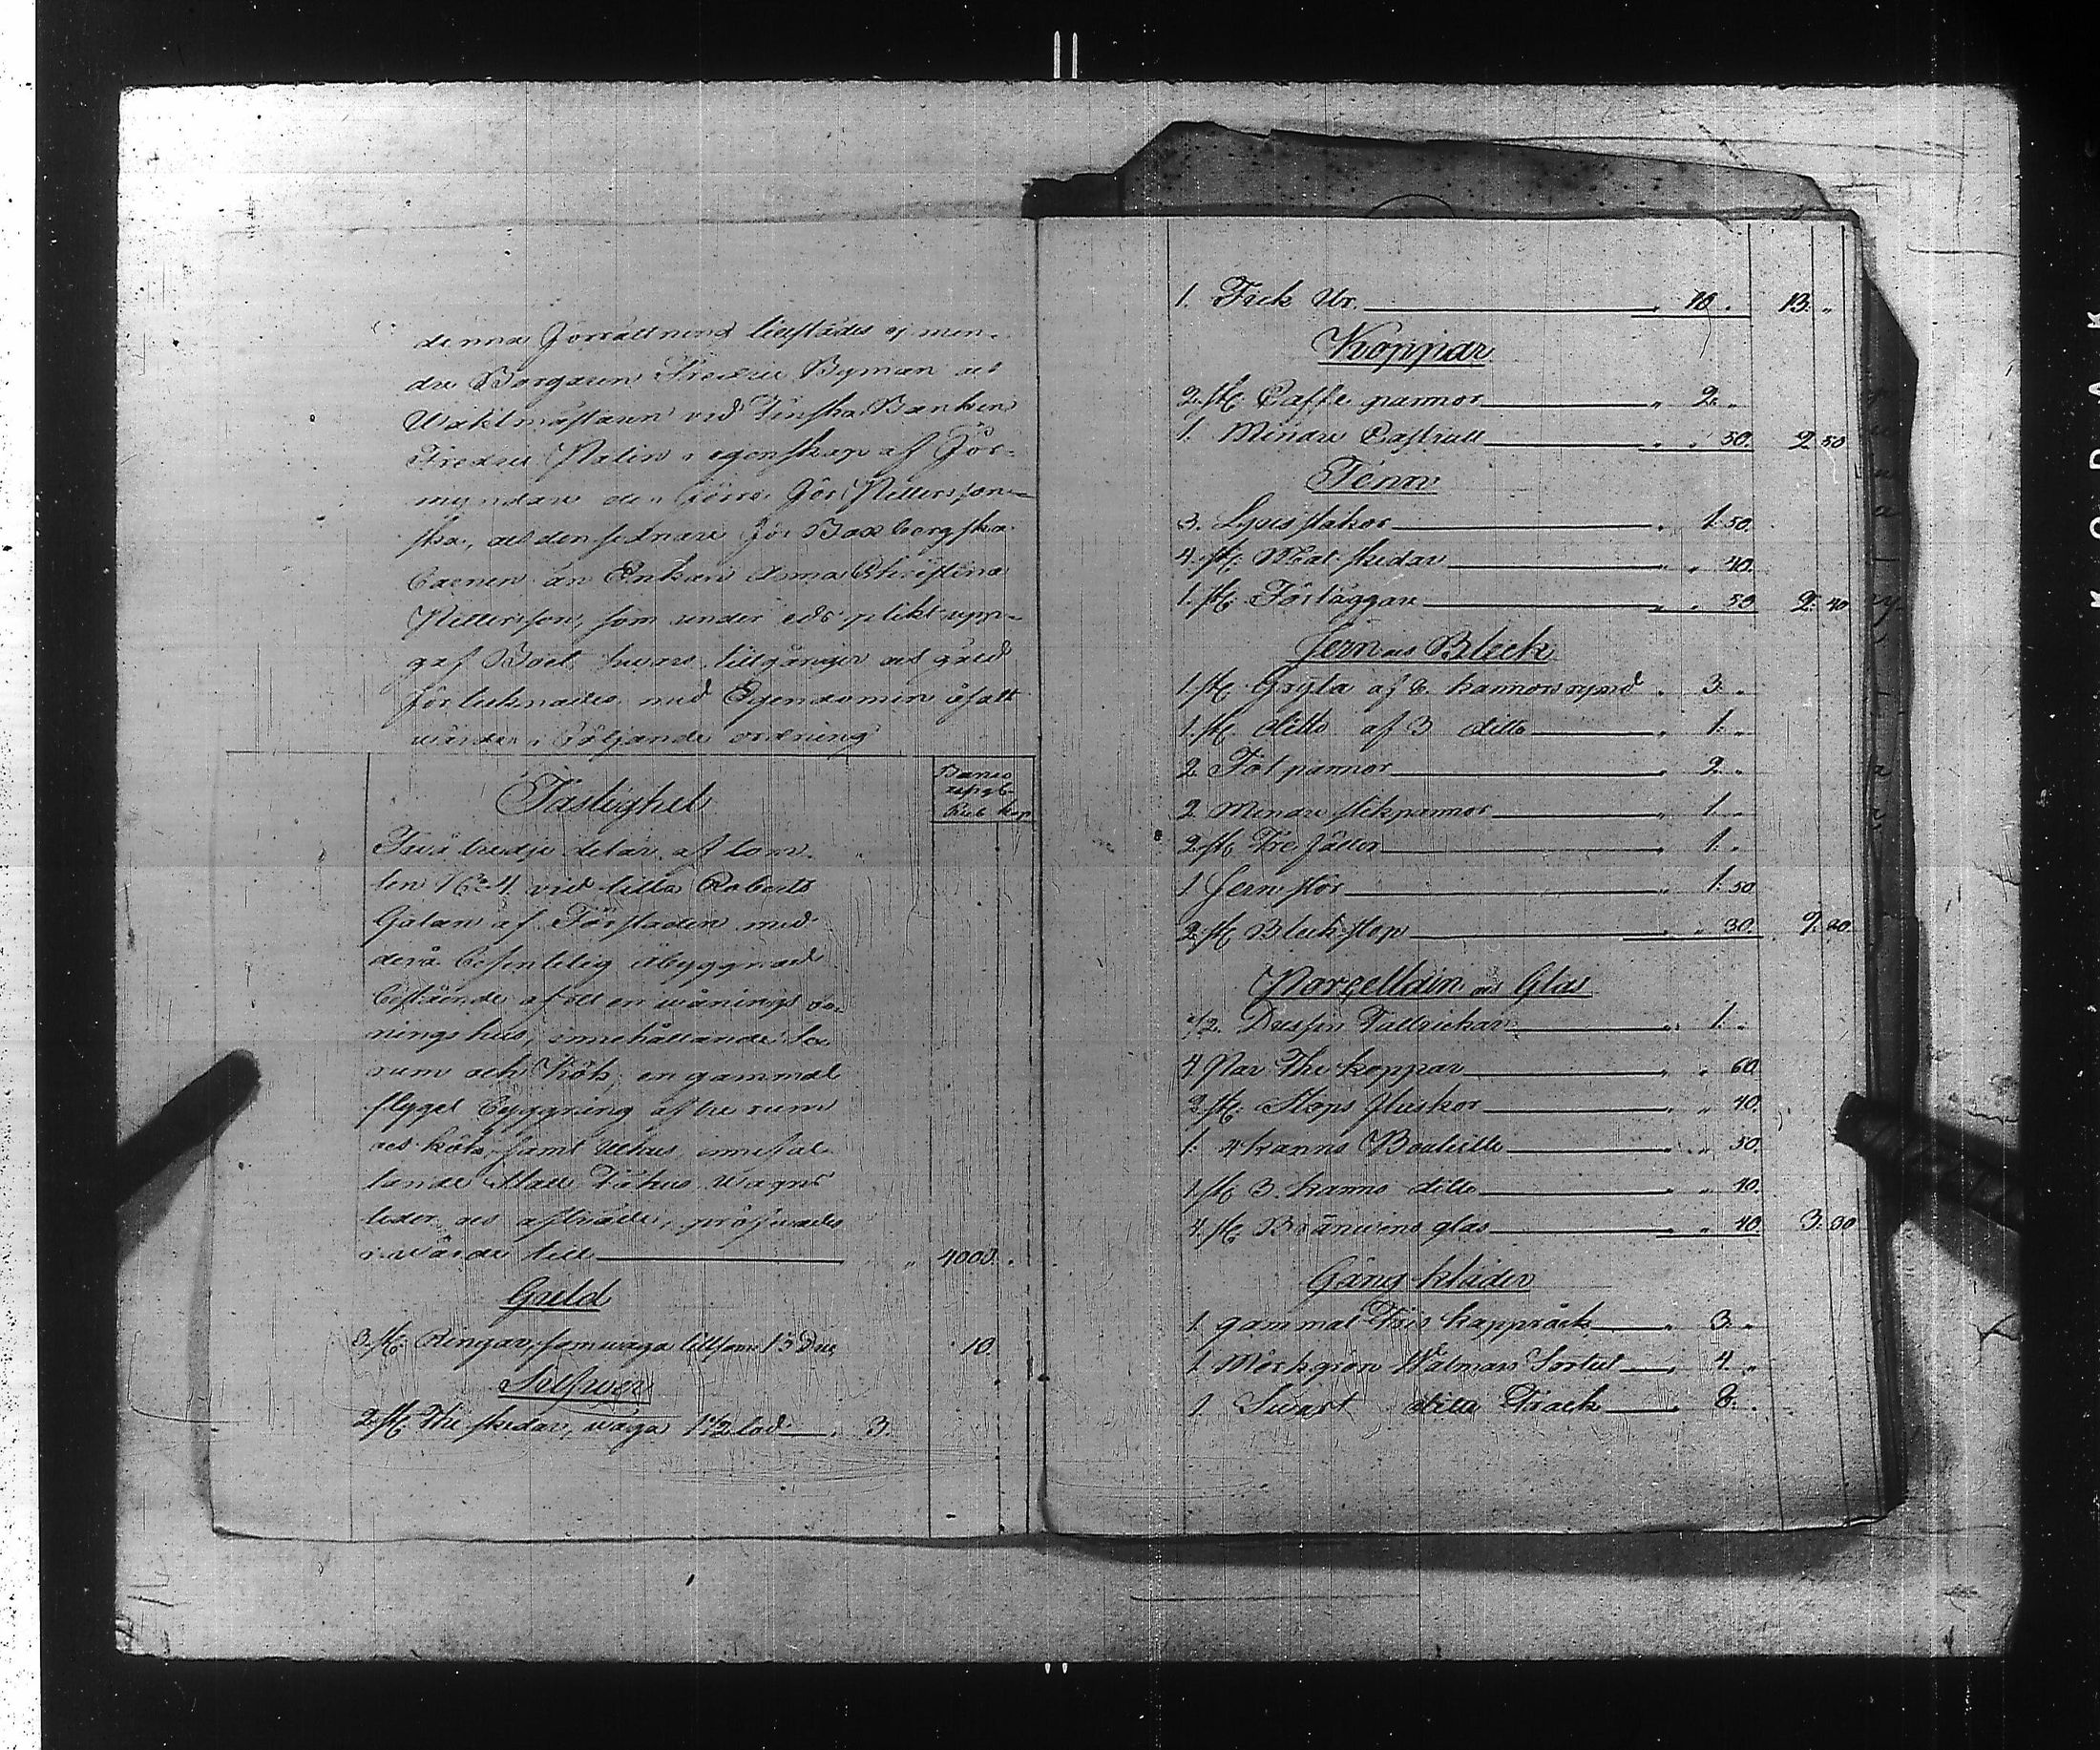 denna Förrättning bivistades ej min-
dre Borgaren Fredric Byman och
Waktmästaren vid Finska Banken
Fredric Malin i egenskap af För-
myndare den förra för Pettersson-
ska, och den sednare för Boxbergska
Barnen än Enkan Anna Christina
Pettersson, som under eds plikt upp-
gaf Boet, hvars tillgångar och gäld
förtecknades med Egendomen åsatt
wärden i följande ordning
Banco
Rub Kop
Fastighet
Två tredje delar af tom-
ten No 4 vid lilla Roberts
Gatan af Förstaden med
derå befintelig åbyggnad
bestående af ett en wånings bo-
ningshus, innehållande
rum och Kök, en gammal
flygel byggning af tre rum
och kök, samt uthus innehål-
lande Stall Fähus wagns
lider och afträde, pröfwades
i wärde till 4000.
Guld
3. st. Ringar, som wäga tillsam 13 Duc. 10.
Silfwer
2 st. The skedar, wäga 1 1/2 lod 3.
1. Fick Ur. 10. 13. "
Koppar
2. st. Caffe pannor 2. "
1. Mindre Castrull " 50. 2 50
Tenn
3. Ljusstakor 1. 50.
4. st. Mat skedar " 40.
1. st. Förläggare " 50 2. 40
Jern och Bleck
1. st. Gryta af 6. kannors rymd 3. "
1. st. ditto af 3 ditto 1. "
2. Fot pannor 2. "
2. Mindre stekpannor 1. "
2. st. Tre fötter 1. "
1 Jern stör 1. 50
2. st. Bleck stop " 30. 9. 80.
Porcellain och Glas
1/2. Dussin Tallrickar 1. "
4 Par The koppar " 60
2. st. Stops fluskor " 40.
1. 4 kanns Bouteille " 50.
1. st. 3. kanns ditto " 40.
4. st. Bränwins glas " 40. 3. 30
Gång kläder
1. gammal Fris kappråck 3. "
1. Mörkgrön Walmars Sortut 4. "
1. Swart ditto Frack 8. "